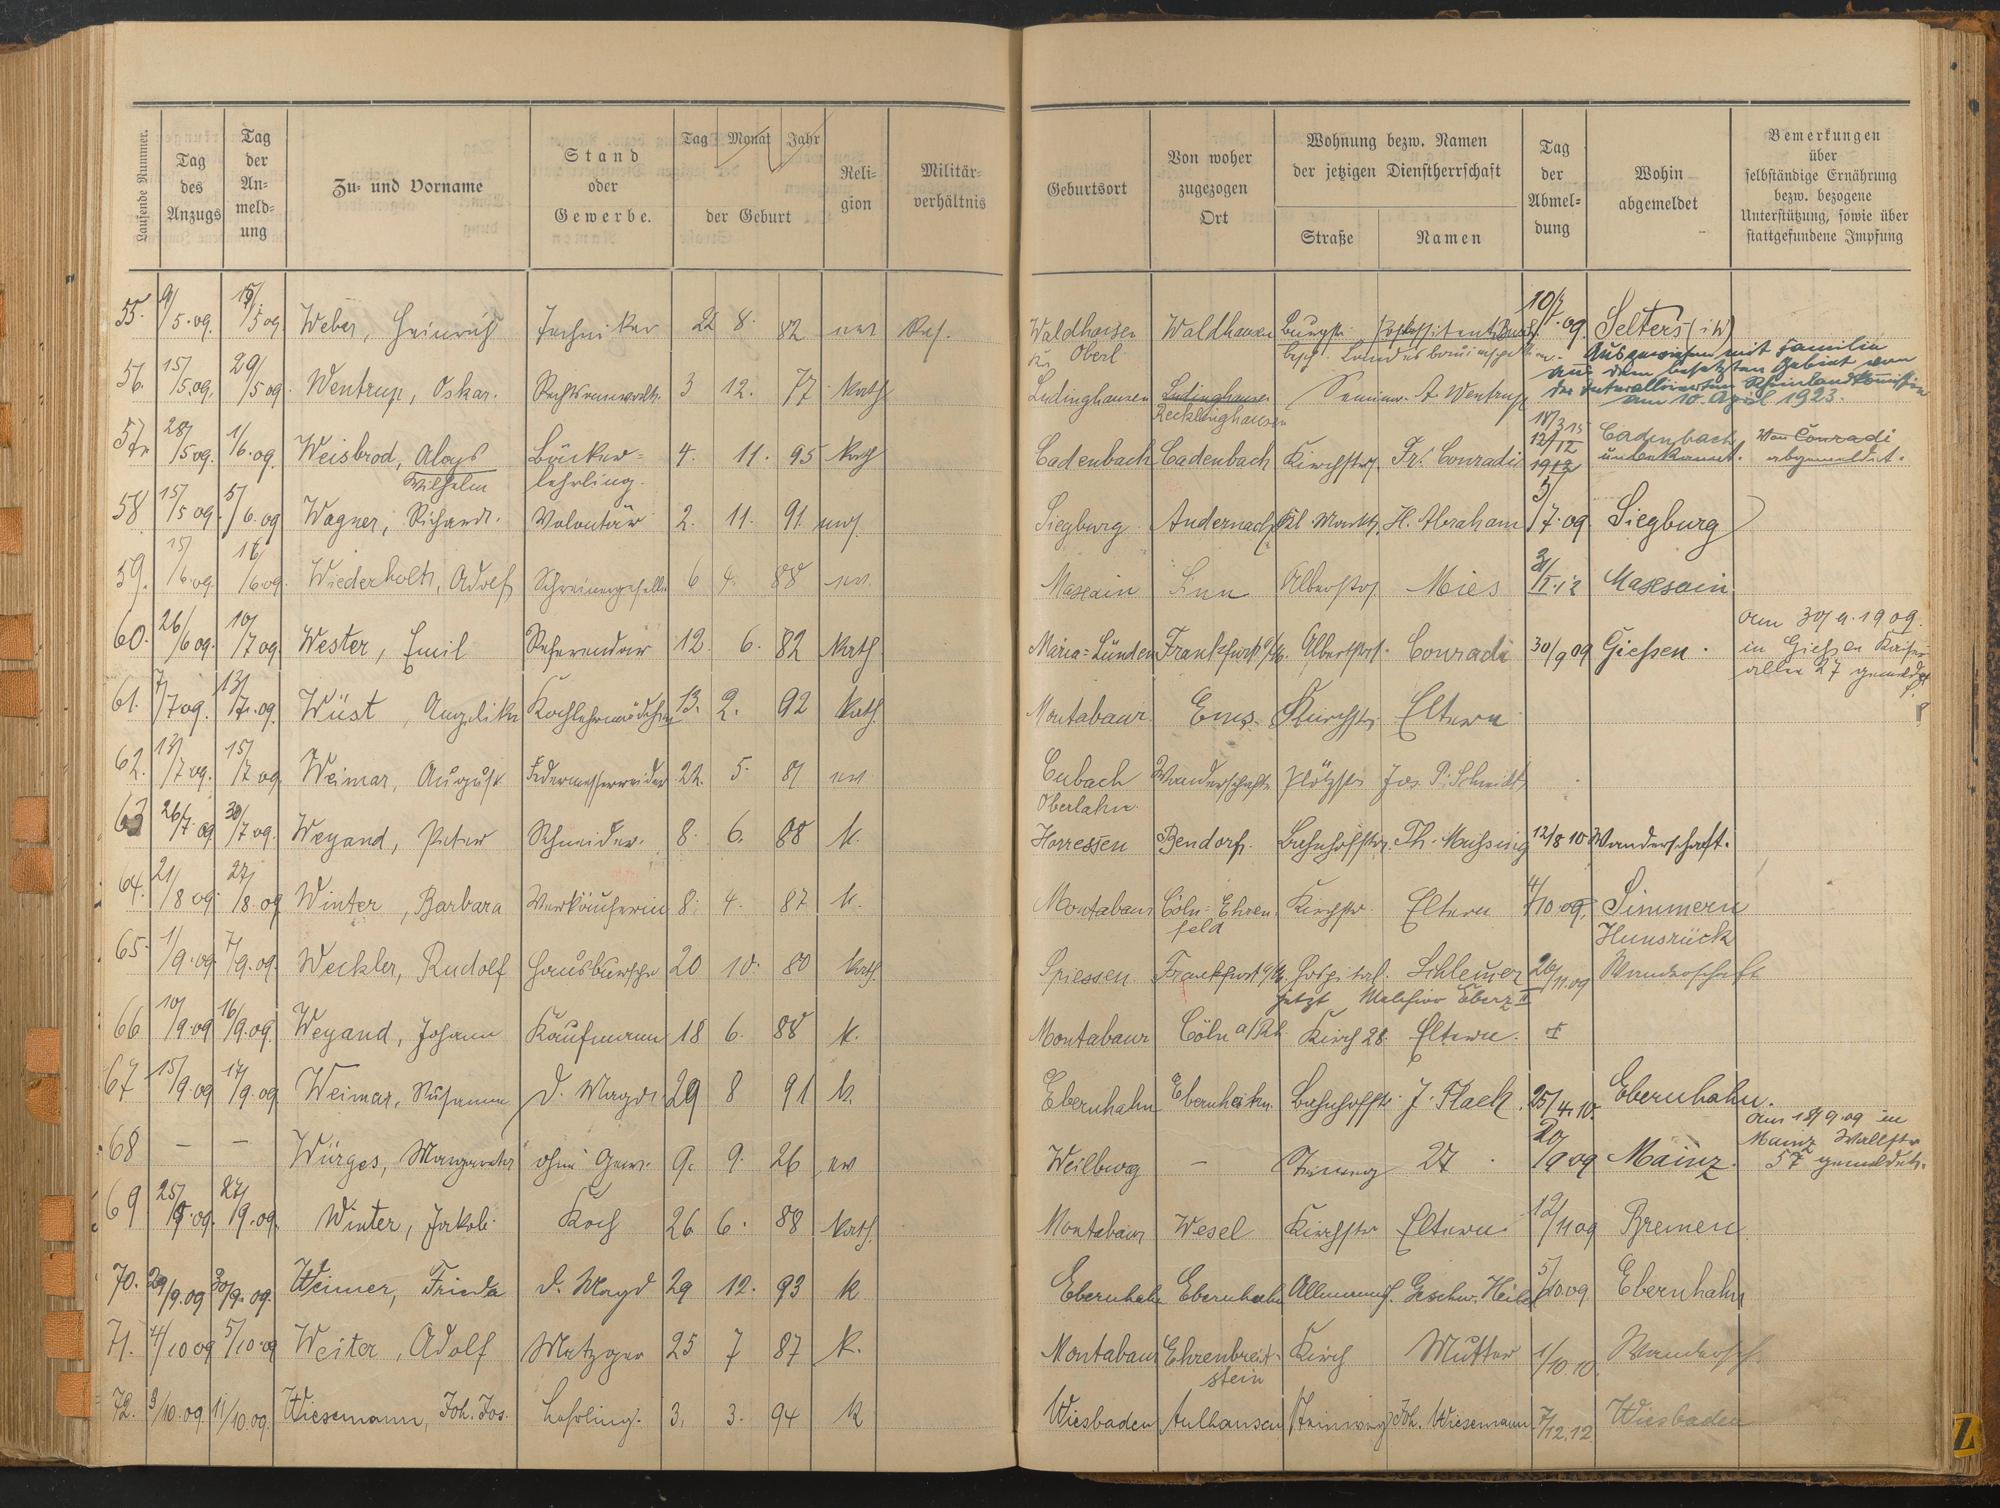 Laufende Nummer. | Tag des Anzugs | Tag der An- meld- ung | Zu- und Vorname | Stand oder Gewerbe. | Tag Monat Jahr der Geburt | Reli- gion | Militär- verhältnis | Geburtsort | Von woher zugezogen Ort | Wohnung bezw. Namen der jetzigen Dienstherrschaft Straße Namen | Tag der Abmel- dung | Wohin abgemeldet | Bemerkungen über selbständige Ernährung bezw. bezogene Unterstützung, sowie über stattgefundene Impfung
55. 9/5.09. 15/5 09. Weber, Heinrich Techniker 8. 82 Res. Waldhausen Waldhausen Burgstr. 10/7.09. Selters (i W)
Oberl
56. 15/5.09. 29/5 09. Wentrup, Oskar. Rechtsanwalt. 3 12. 77 kath Ludinghausen Ludinghausen A. Wentrup Ausgewiesen mit Familie
aus dem besetzten Gebiet von
der interalliierten Rheinlandkomission
am 10. April 1923.
Recklinghausen
57. 28/5 09. 1/6.09. Weisbrod, Aloys Bäcker- 4. 11. 95 kath Cadenbach Cadenbach Kirchstr. Fr. Conradi 12/12 1912 Cadenbach unbekannt. Von Conradi abgemeldet.
Wilhelm lehrling.
58 15/5 09. 5/6.09 Wagner, Richard. Volontär 2. 11. 91. Siegburg Andernach Kl. Markt H. Abraham 5/7.09 Siegburg
59. 15/6.09. 16/6 09. Wiederholt, Adolf Schreinergeselle 6 4. 88 ev. Maxsain Sinn Alberstr. Mies 31/I.12 Maxsain
60. 26/6 09. 10/7 09 Wester, Emil Referendar 12. 6. 82 kath Maria-Linden Frankfurt a/M. Alberstr. Conradi 30/9 09 Giessen. am 30/9.1909.
in Giessen Kaiser
allee 27 gemeldet
61. 7/7 09. 13/7.09. Wüst, Angelika Kochlehrmädchen 13. 2. 92 kath. Montabaur Ems. Kirchstr Eltern
62. 13/7 09. 15/7 09 Weimar, August 22. 5. ev Cubach Wanderschaft Plötzstr Jos. P. Schmidt
Oberlahn.
63 26/7 09 30/7 09. Weyand, Peter Schneider. 8. 6. 88 k. Horressen Bendorf. Bahnhofstr. 12/8 10 Wanderschaft.
64. 21/8 09. 27/8.09 Winter, Barbara Verkäuferin 8. 4. 87 k. Montabaur Cöln-Ehren Kirchstr. Eltern 4/10.09. Simmern
feld Hunsrück
65. 1/9.09 7/9.09. Weckler, Rudolf Hausbursche 20 10. 80 kath. Spiessen Frankfurt a/M Hospital. Schleimer 26/11.09 Wanderschaft
jetzt Melchior Eberz II
66 10/9.09 16/9.09. Weyand, Johann Kaufmann 18 6. 88 k. Montabaur Cöln a/Rh. Kirch 28. Eltern.
67 15/9.09 17/9.09. Weimar, Susanna d. Magd. 29 8 91 k. Ebernhahn Ebernhahn. Bahnhofstr. J. Flach. 25/4.10. Ebernhahn.
68 — — Würges, Margareta ohne Gew. 9. 9. 26 ev Weilburg — Steinweg 27 20/9 09 Mainz. am 18/9.09 in
Mainz Wallstr
57 gemeldet.
69 25/9.09. 27/9.09. Winter, Jakob. Koch 26 6. 88 kath. Montabaur Wesel Kirchstr Eltern 12/11 09 Bremen
70. 29/9.09 30/9.09. Weimer, Frieda d. Magd 29 12. 93 k Ebernhahn Ebernhahn Geschw. 5/10.09. Ebernhahn
71. 4/10 09 5/10 09 Weiter, Adolf Metzger 25 7 87 k. Montabaur Ehrenbreit- Kirch Mutter 1/10 10. Wandersch.
stein
72. 9/10.09 11/10.09. Wiesemann, Joh. Jos. Lehrling. 3. 3. 94 k Wiesbaden Aulhausen Steinweg Joh. Wiesemann 7/12.12 Wiesbaden
Z